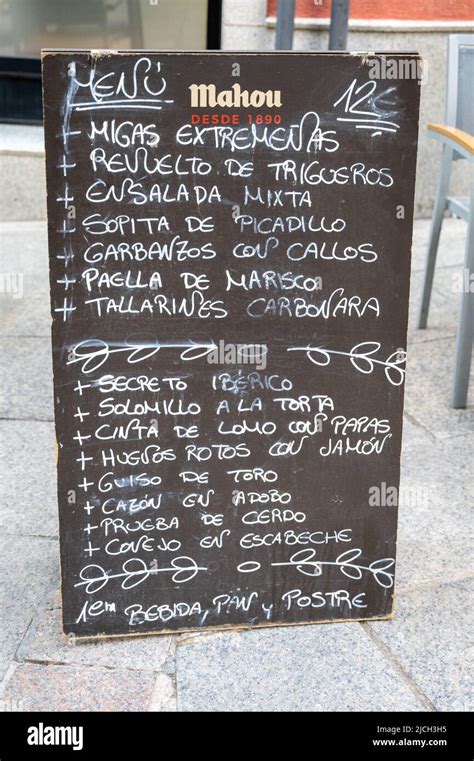 MENÚ
Mahou
DESDE 1890
12€
- MIGAS EXTREMEÑAS
+ REVUELTO DE TRIGUEROS
+ ENSALADA MIXTA
+ SOPITA DE PICADILLO
+ GARBANZOS CON CALLOS
+ PAELLA DE MARISCO
+ TALLARINES CARBONARA
+ SECRETO IBÉRICO
+ SOLOMILLO A LA TORTA
+ CINTA DE LOMO CON PAPAS
+ HUEVOS ROTOS CON JAMÓN
+ GUISO DE TORO
+ CAZÓN EN ADOBO
+ PRUEBA DE CERDO
+ CONEJO EN ESCABECHE
1ª BEBIDA, PAN Y POSTRE
alamy
Image ID: 2JCH3H5
www.alamy.com